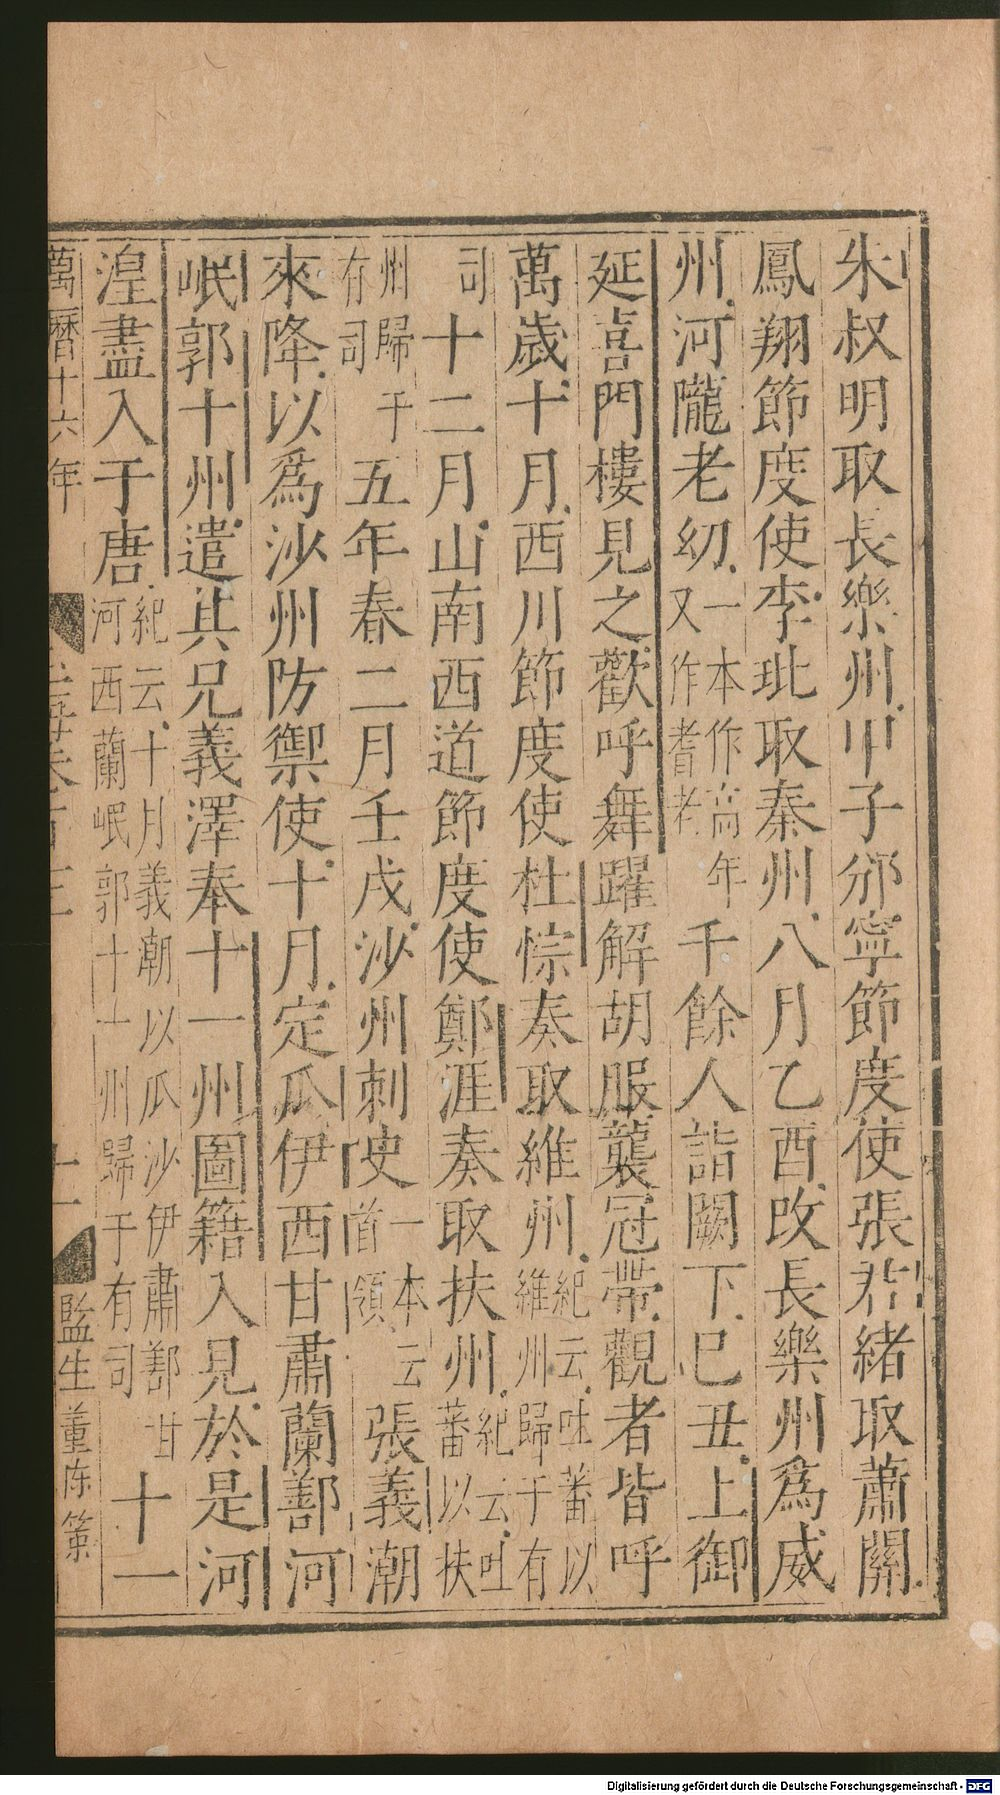 朱叔明取長樂州甲子邠寧節度使張君緒取蕭關
鳳翔節度使李玭取秦州八月乙酉改長樂州爲威
州河隴老幼一本作高年又作耆老千餘人詣闕下巳丑上御
延喜門樓見之歡呼舞躍解胡服襲冠帶觀者皆呼
萬歲十月西川節度使杜悰奏取維州紀云吐蕃以維州歸于有
司十二月山南西道節度使鄭涯奏取扶州紀云吐蕃以扶
州歸于有司五年春二月壬戌沙州刺史一本云首領張義潮
來降以爲沙州防禦使十月定瓜伊西甘肅蘭鄯河
岷郭十州遣其兄義澤奉十一州圖籍入見於是河
湟盡入于唐紀云十月義潮以瓜沙伊肅鄯甘河西蘭岷郭十一州歸于有司十一
萬曆十六年
十一
監生董
Digitalisierung gefördert durch die Deutsche Forschungsgemeinschaft - DFG